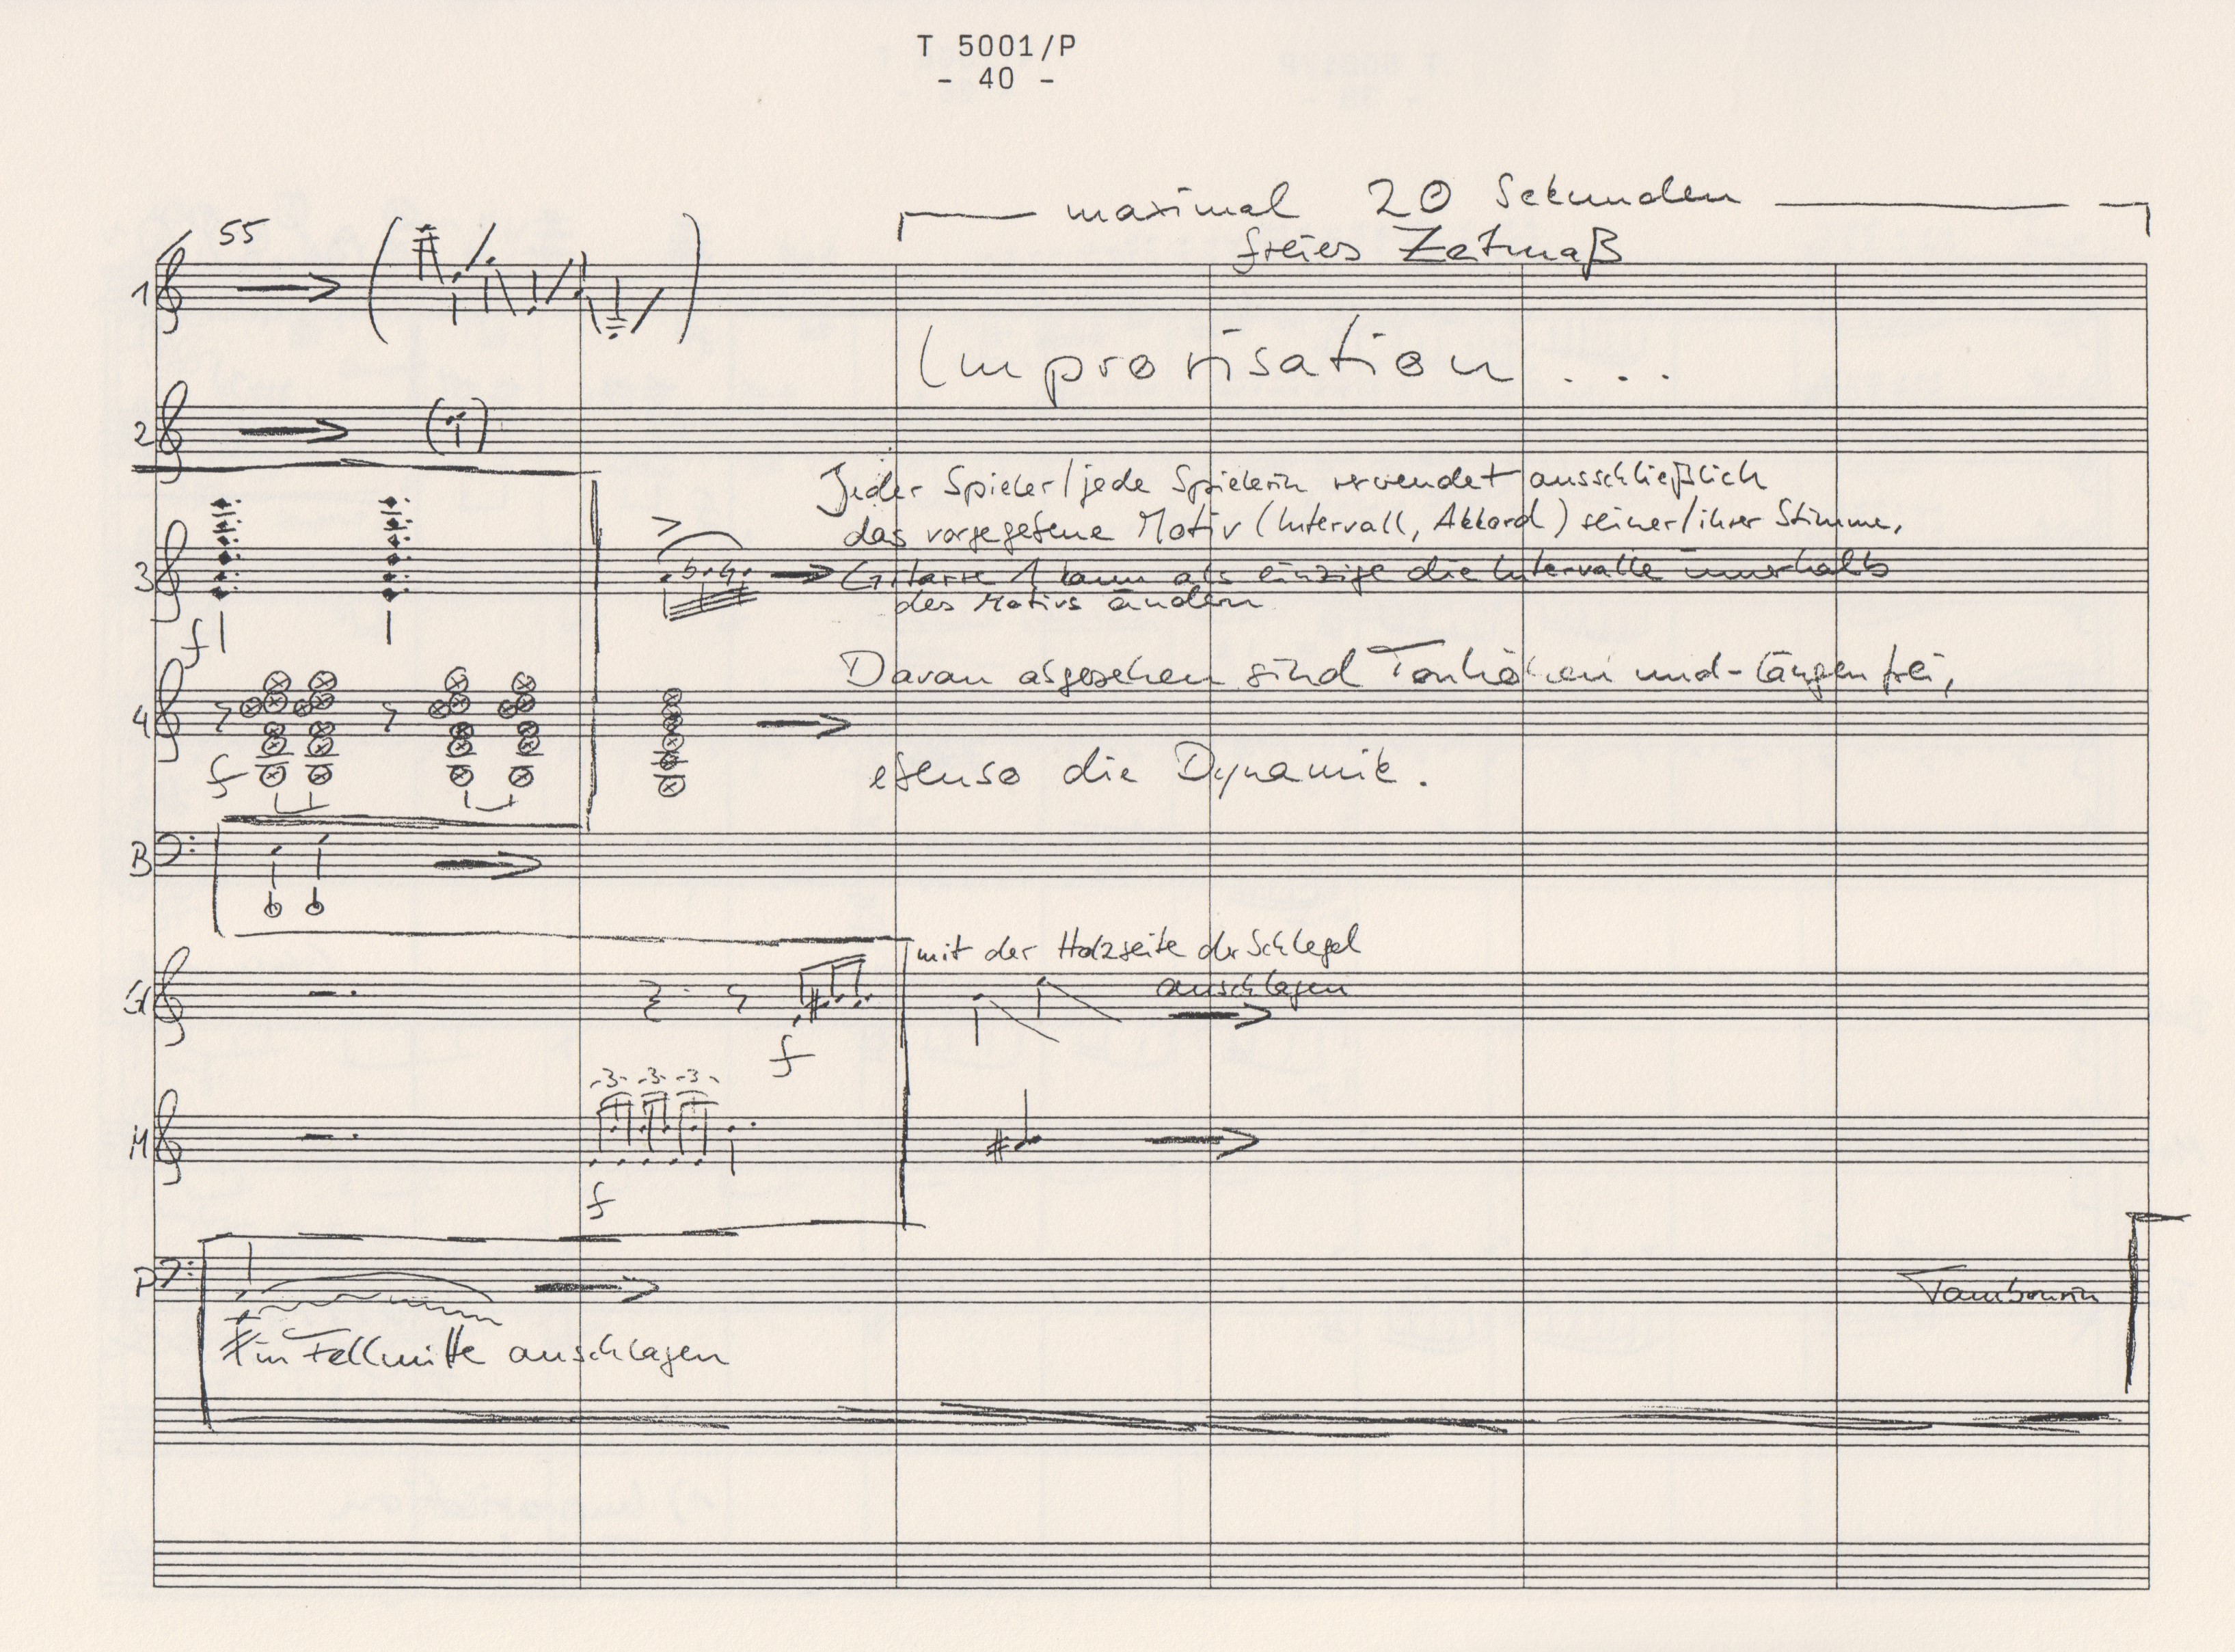 T 5001/P
- 40 -
maximal 20 Sekunden
freies Zeitmaß
55
1
Improvisation . . .
2
Jeder Spieler/jede Spielerin verwendet ausschließlich
das vorgegebene Motiv (Intervall, Akkord) seiner/ihrer Stimme,
3
Gitarre 1 kann als einzige die Intervalle innerhalb
des Motivs ändern
f
Davan abgesehen sind Tonhöhen und -längen frei,
4
f
ebenso die Dynamik.
B
mit der Holzseite der Schlegel
Gl
anschlagen
f
-3- -3- -3-
M
f
P
Tambourin
in Fellmitte anschlagen